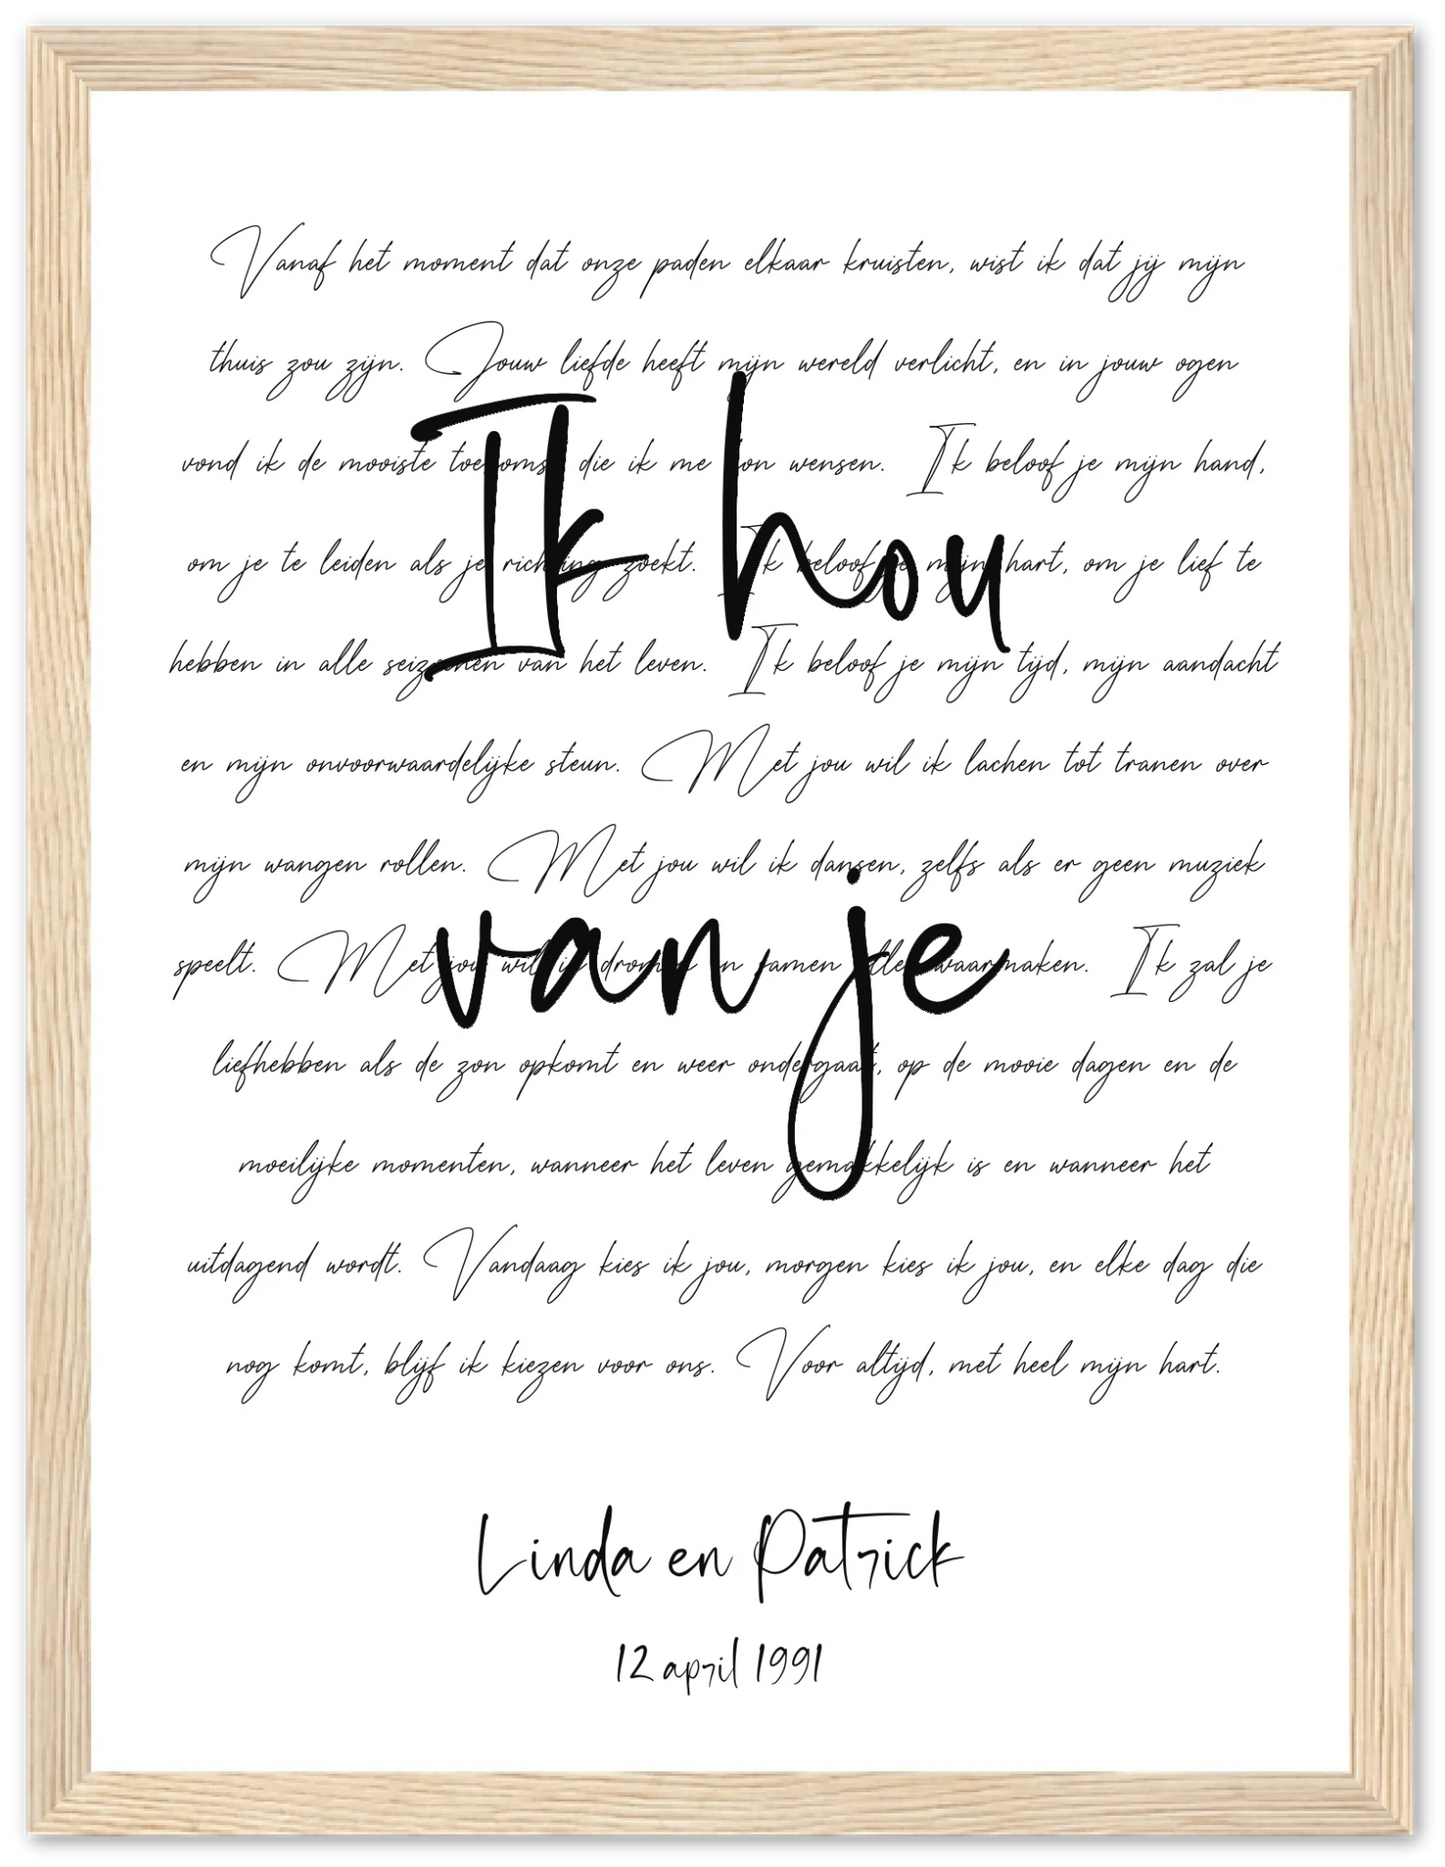 Vanaf het moment dat onze paden elkaar kruisten, wist ik dat jij mijn
thuis zou zijn. Jouw liefde heeft mijn wereld verlicht, en in jouw ogen
vond ik de mooiste toekomst die ik me kon wensen. Ik beloof je mijn hand,
Ik hou
om je te leiden als je richting zoekt. Ik beloof je mijn hart, om je lief te
hebben in alle seizoenen van het leven. Ik beloof je mijn tijd, mijn aandacht
en mijn onvoorwaardelijke steun. Met jou wil ik lachen tot tranen over
mijn wangen rollen. Met jou wil ik dansen, zelfs als er geen muziek
speelt. Met jou wil ik dromen en samen alles waarmaken. Ik zal je
van je
liefhebben als de zon opkomt en weer ondergaat, op de mooie dagen en de
moeilijke momenten, wanneer het leven gemakkelijk is en wanneer het
uitdagend wordt. Vandaag kies ik jou, morgen kies ik jou, en elke dag die
nog komt, blijf ik kiezen voor ons. Voor altijd, met heel mijn hart.
Linda en Patrick
12 april 1991